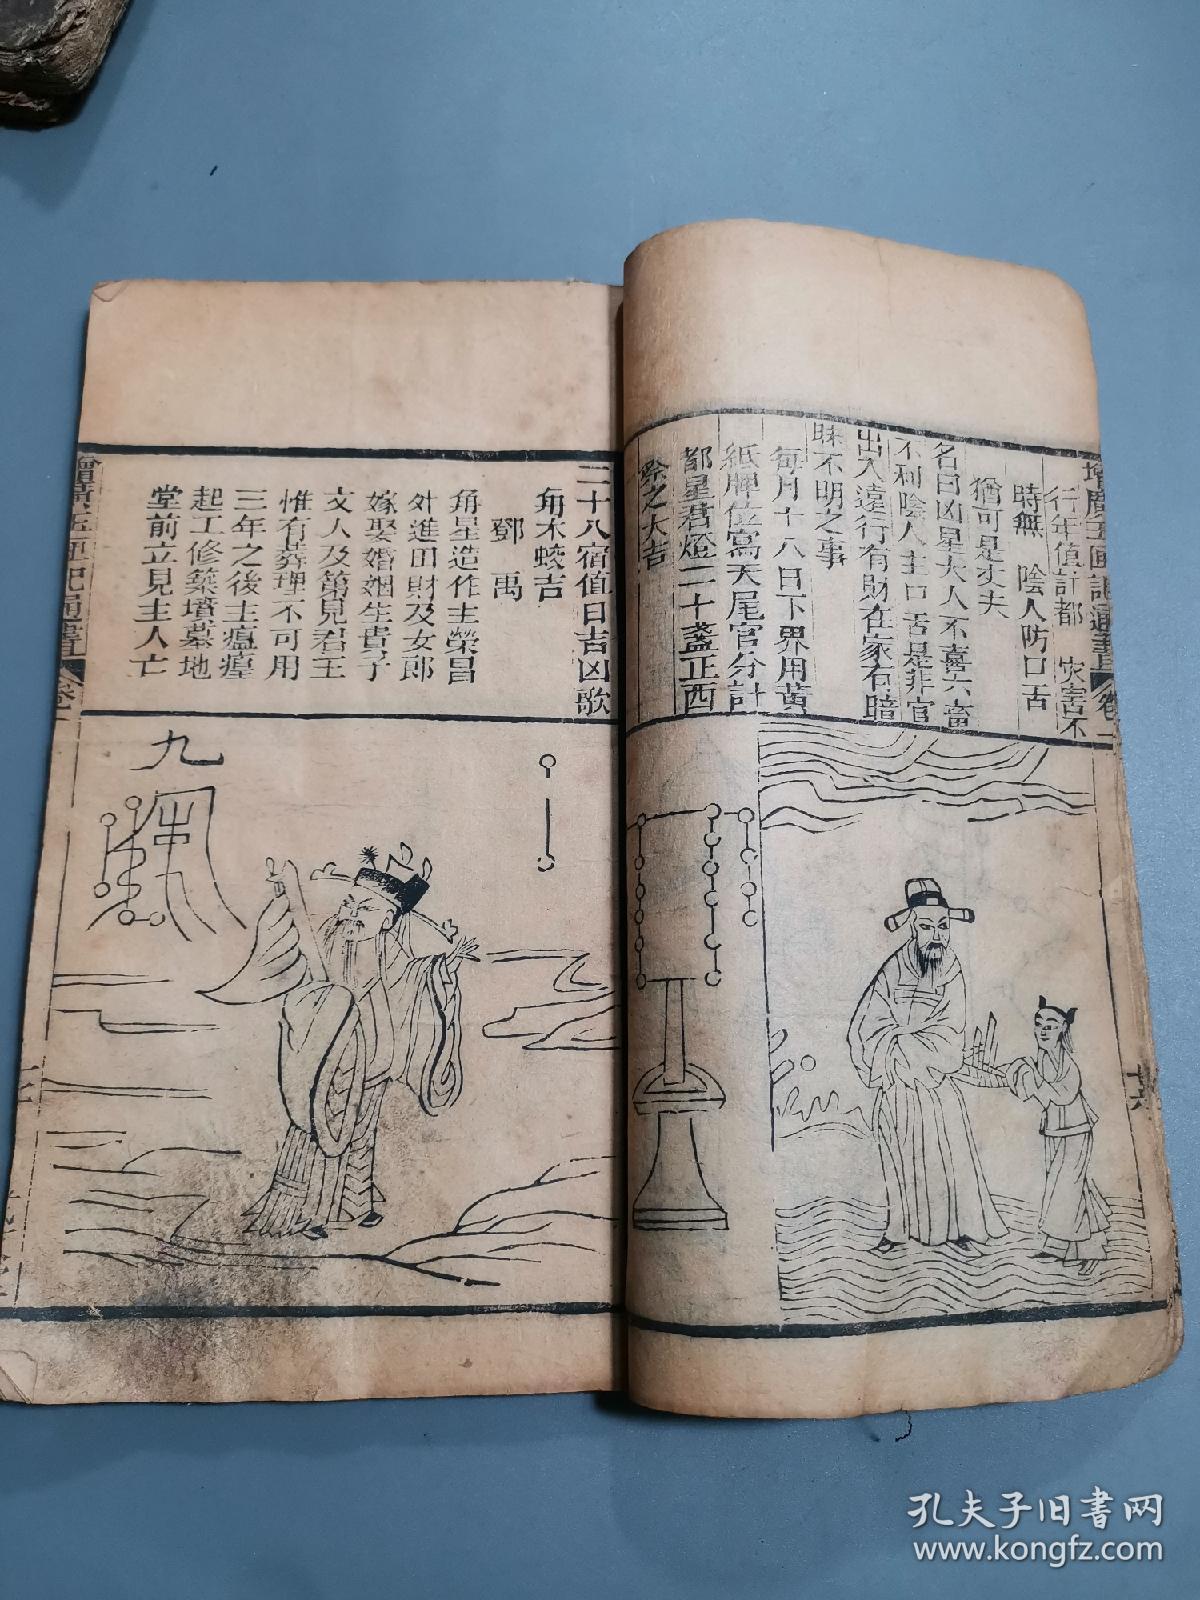 增廣玉匣記通書 卷一
行年值計都 灾害不
時無 陰人防口舌
猶可是丈夫
名曰凶星大人不喜六畜
不利陰人主口舌是非官
出入遠行有財在家有暗
昧不明之事
每月十八日下界用黃
紙牌位寫天尾官分計
都星君燈二十盞正西
祭之大吉
二十八宿值日吉凶歌
角木蛟吉
鄧 禹
角星造作主榮昌
外進田財及女郎
嫁娶婚姻生貴子
文人及第見君王
惟有葬埋不可用
三年之後主瘟瘴
起工修築墳墓地
堂前立見主人亡
九
孔夫子旧書网
www.kongfz.com